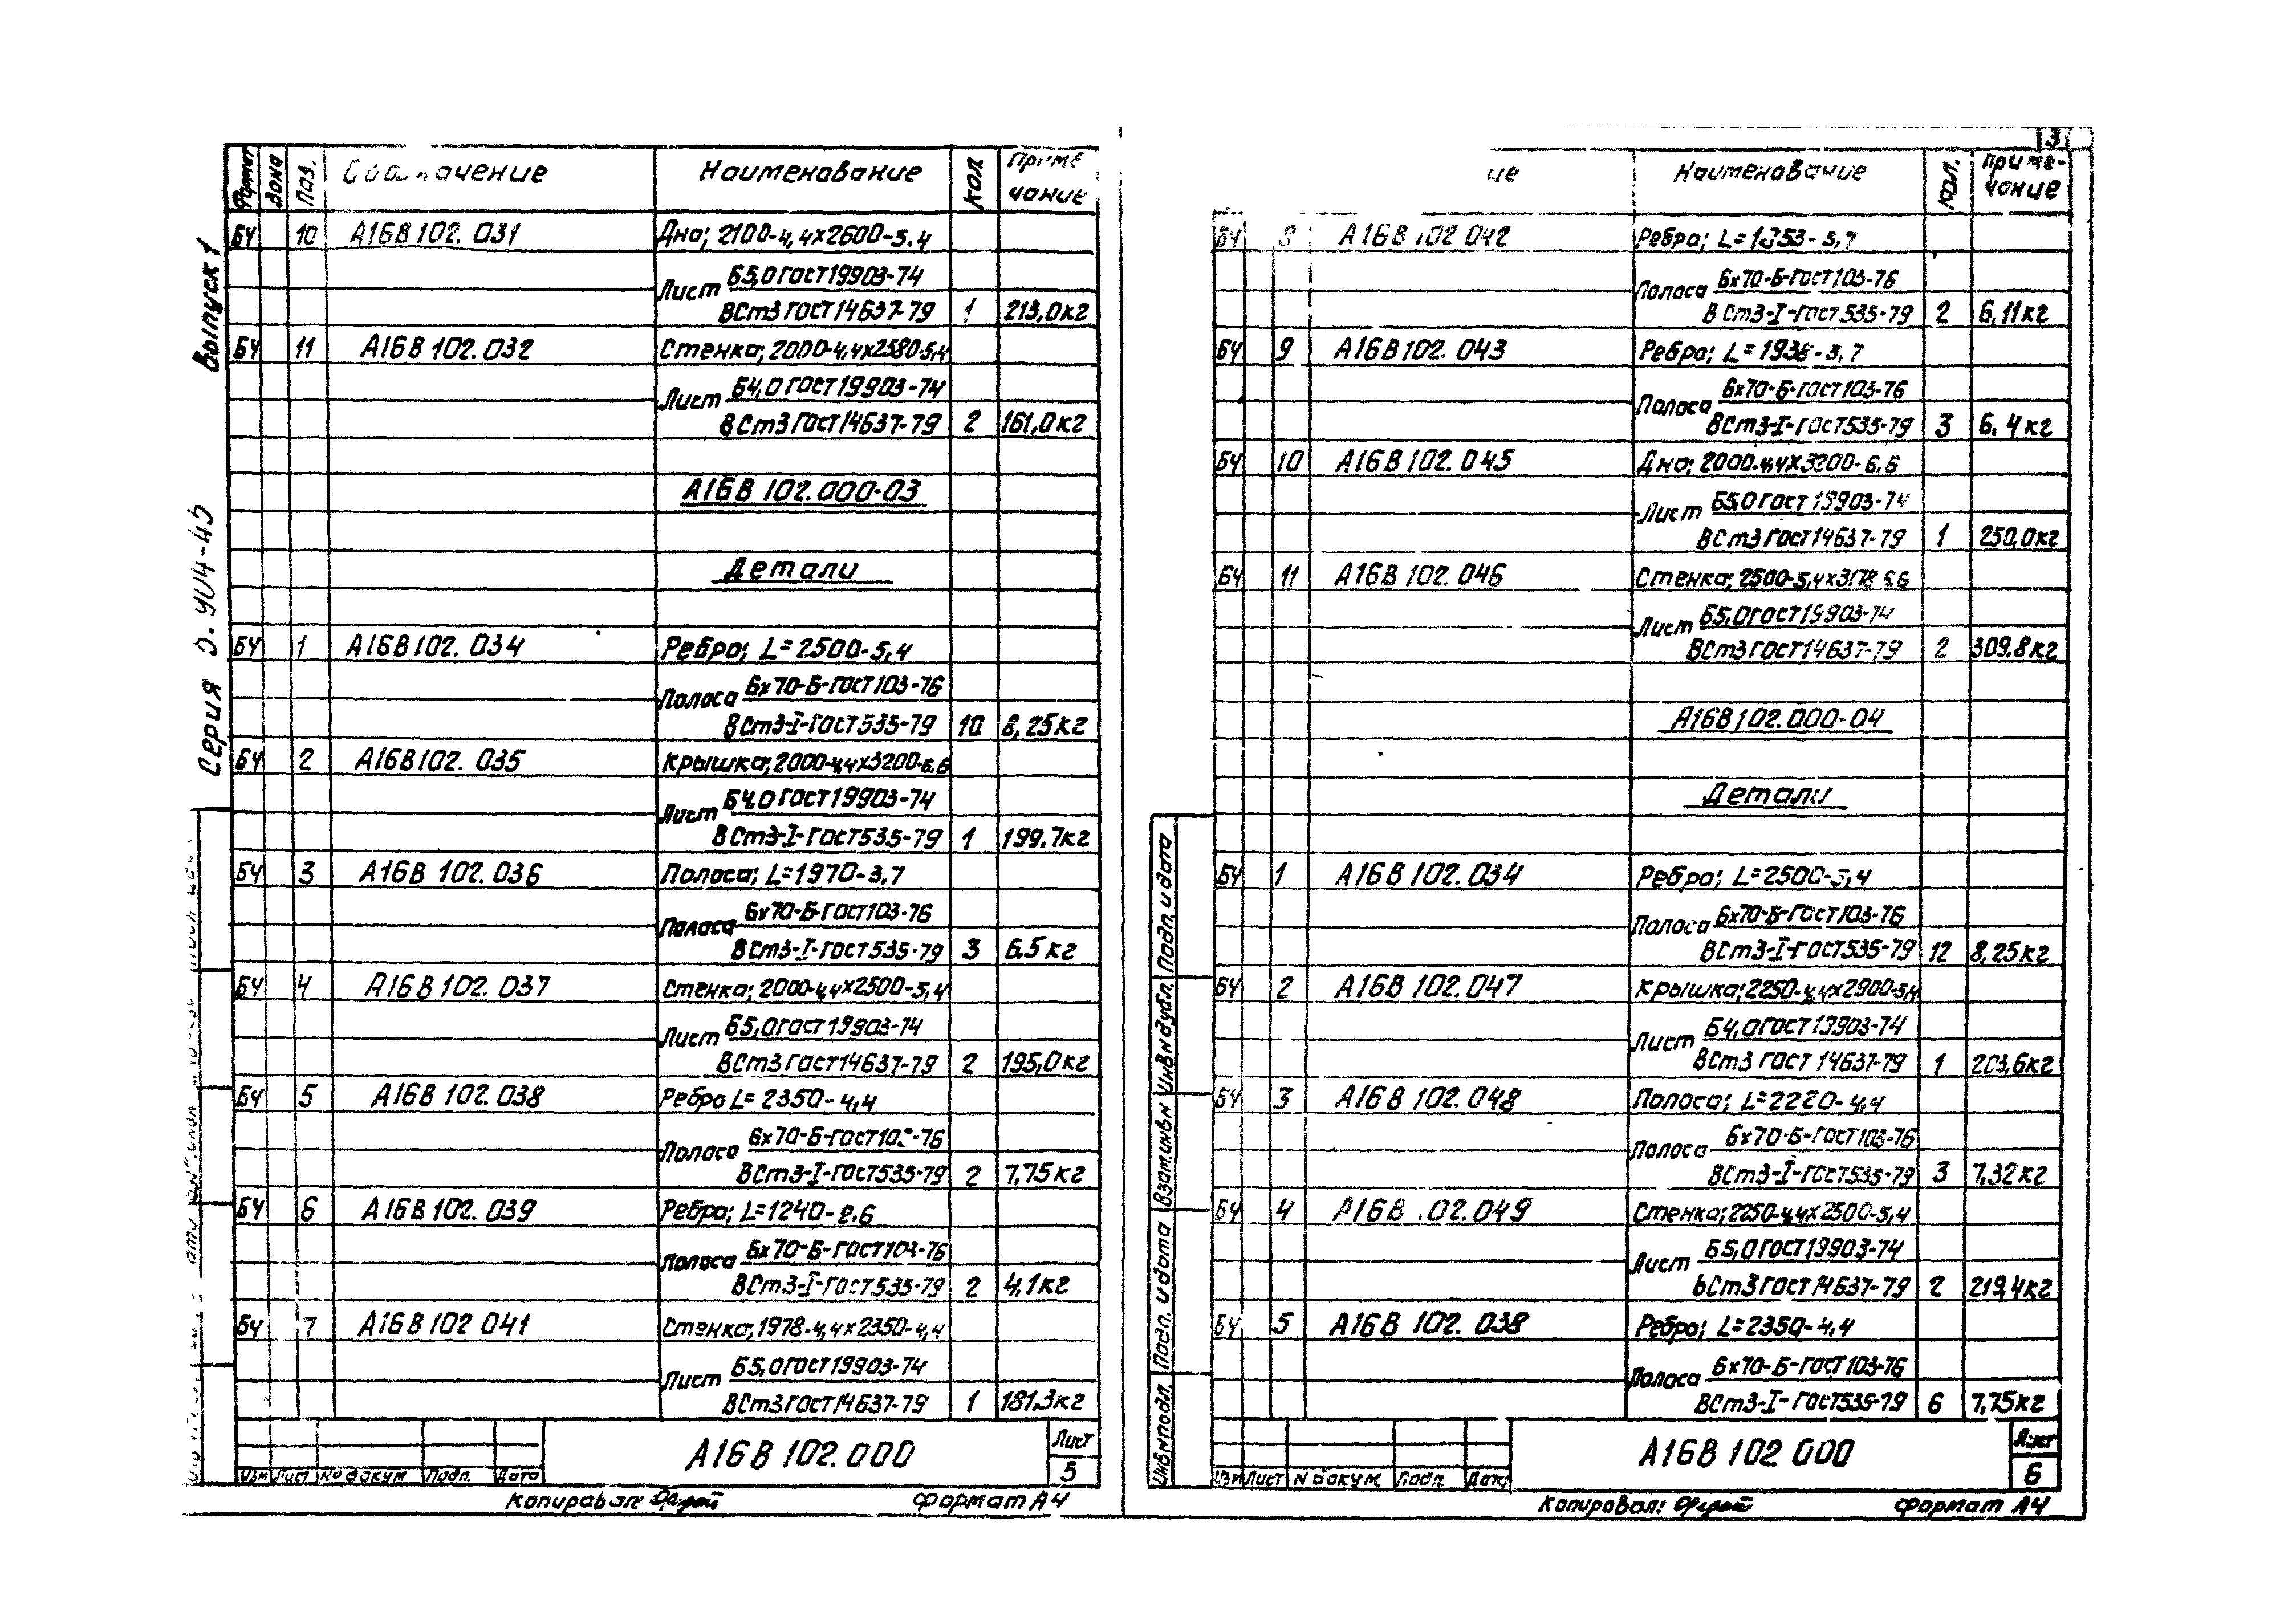 Формат Зона Поз. Наименование Кол. Приме
чание
БЧ 10 А16В102.031 Дно; 2100-4,4х2600-5.4
Лист Б5,0 ГОСТ19903-74
ВСт3 ГОСТ14637-79 1 213,0кг
БЧ 11 А16В 102.032 Стенка; 2000-4,4х2580-5,4
Лист Б4,0 ГОСТ19903-74
ВСт3 ГОСТ14637-79 2 161,0кг
А16В 102.000-03
Детали
БЧ 1 А16В102.034 Ребро; L=2500-5,4
Полоса 6х70-Б-ГОСТ103-76
ВСт3-I-ГОСТ535-79 10 8,25кг
БЧ 2 А16В102.035 Крышка; 2000-4,4х3200-6.6
Лист Б4,0 ГОСТ19903-74
ВСт3-I-ГОСТ535-79 1 199.7кг
БЧ 3 А16В 102.036 Полоса; L=1970-3,7
Полоса 6х70-Б-ГОСТ103-76
ВСт3-I-ГОСТ535-79 3 6.5кг
БЧ 4 А16В102.037 Стенка; 2000-4,4х2500-5,4
Лист Б5,0 ГОСТ19903-74
ВСт3 ГОСТ14637-79 2 195,0кг
БЧ 5 А16В 102.038 Ребро L=2350-4,4
Полоса 6х70-Б-ГОСТ10 -76
ВСт3-I-ГОСТ535-79 2 7,75кг
БЧ 6 А16В102.039 Ребро; L=1240-2.6
Полоса 6х70-Б-ГОСТ103-76
ВСт3-I-ГОСТ535-79 2 4,1кг
БЧ 7 А16В102 041 Стенка; 1978-4,4х2350-4,4
Лист Б5,0 ГОСТ19903-74
ВСт3 ГОСТ14637-79 1 181.3кг
А16В 102.000
Лист
5
Изм Лист № докум Подп. Дата
Копировал: Формат А4
Выпуск 1
Серия
3
ие Наименование Кол. Приме-
чание
БЧ 8 А16В 102 042 Ребро; L=1853-3,7
Полоса 6х70-Б-ГОСТ103-76
ВСт3-I-ГОСТ535-79 2 6,11кг
БЧ 9 А16В102.043 Ребро; L=1938-3,7
Полоса 6х70-Б-ГОСТ103-76
ВСт3-I-ГОСТ535-79 3 6.4кг
БЧ 10 А16В102.045 Дно; 2000-4,4х3200-6.6
Лист Б5,0 ГОСТ 19903-74
ВСт3 ГОСТ14637-79 1 250,0кг
БЧ 11 А16В 102.046 Стенка; 2500-5,4х3178 6.6
Лист Б5,0 ГОСТ19903-74
ВСт3 ГОСТ14637-79 2 309.8кг
А16В102.000-04
Детали
БЧ 1 А16В 102.034 Ребро; L=2500-5,4
Полоса 6х70-Б-ГОСТ103-76
ВСт3-I-ГОСТ535-79 12 8,25кг
БЧ 2 А16В 102.047 Крышка; 2250-4,4х2900-5,4
Лист Б4,0 ГОСТ19903-74
ВСт3 ГОСТ 14637-79 1 203,6кг
БЧ 3 А16В 102.048 Полоса; L=2220-4,4
Полоса 6х70-Б-ГОСТ103-76
ВСт3-I-ГОСТ535-79 3 7,32кг
БЧ 4 А16В .02.049 Стенка; 2250-4,4х2500-5,4
Лист Б5,0 ГОСТ19903-74
ВСт3 ГОСТ14637-79 2 219,4кг
БЧ 5 А16В 102.038 Ребро; L=2350-4,4
Полоса 6х70-Б-ГОСТ103-76
ВСт3-I-ГОСТ535-79 6 7,75кг
А16В 102 000
Лист
6
Изм Лист N докум Подп. Дата
Копировал: Формат А4
Инв.№подл. Подп. и дата Взам.инв.№ Инв.№дубл. Подп. и дата